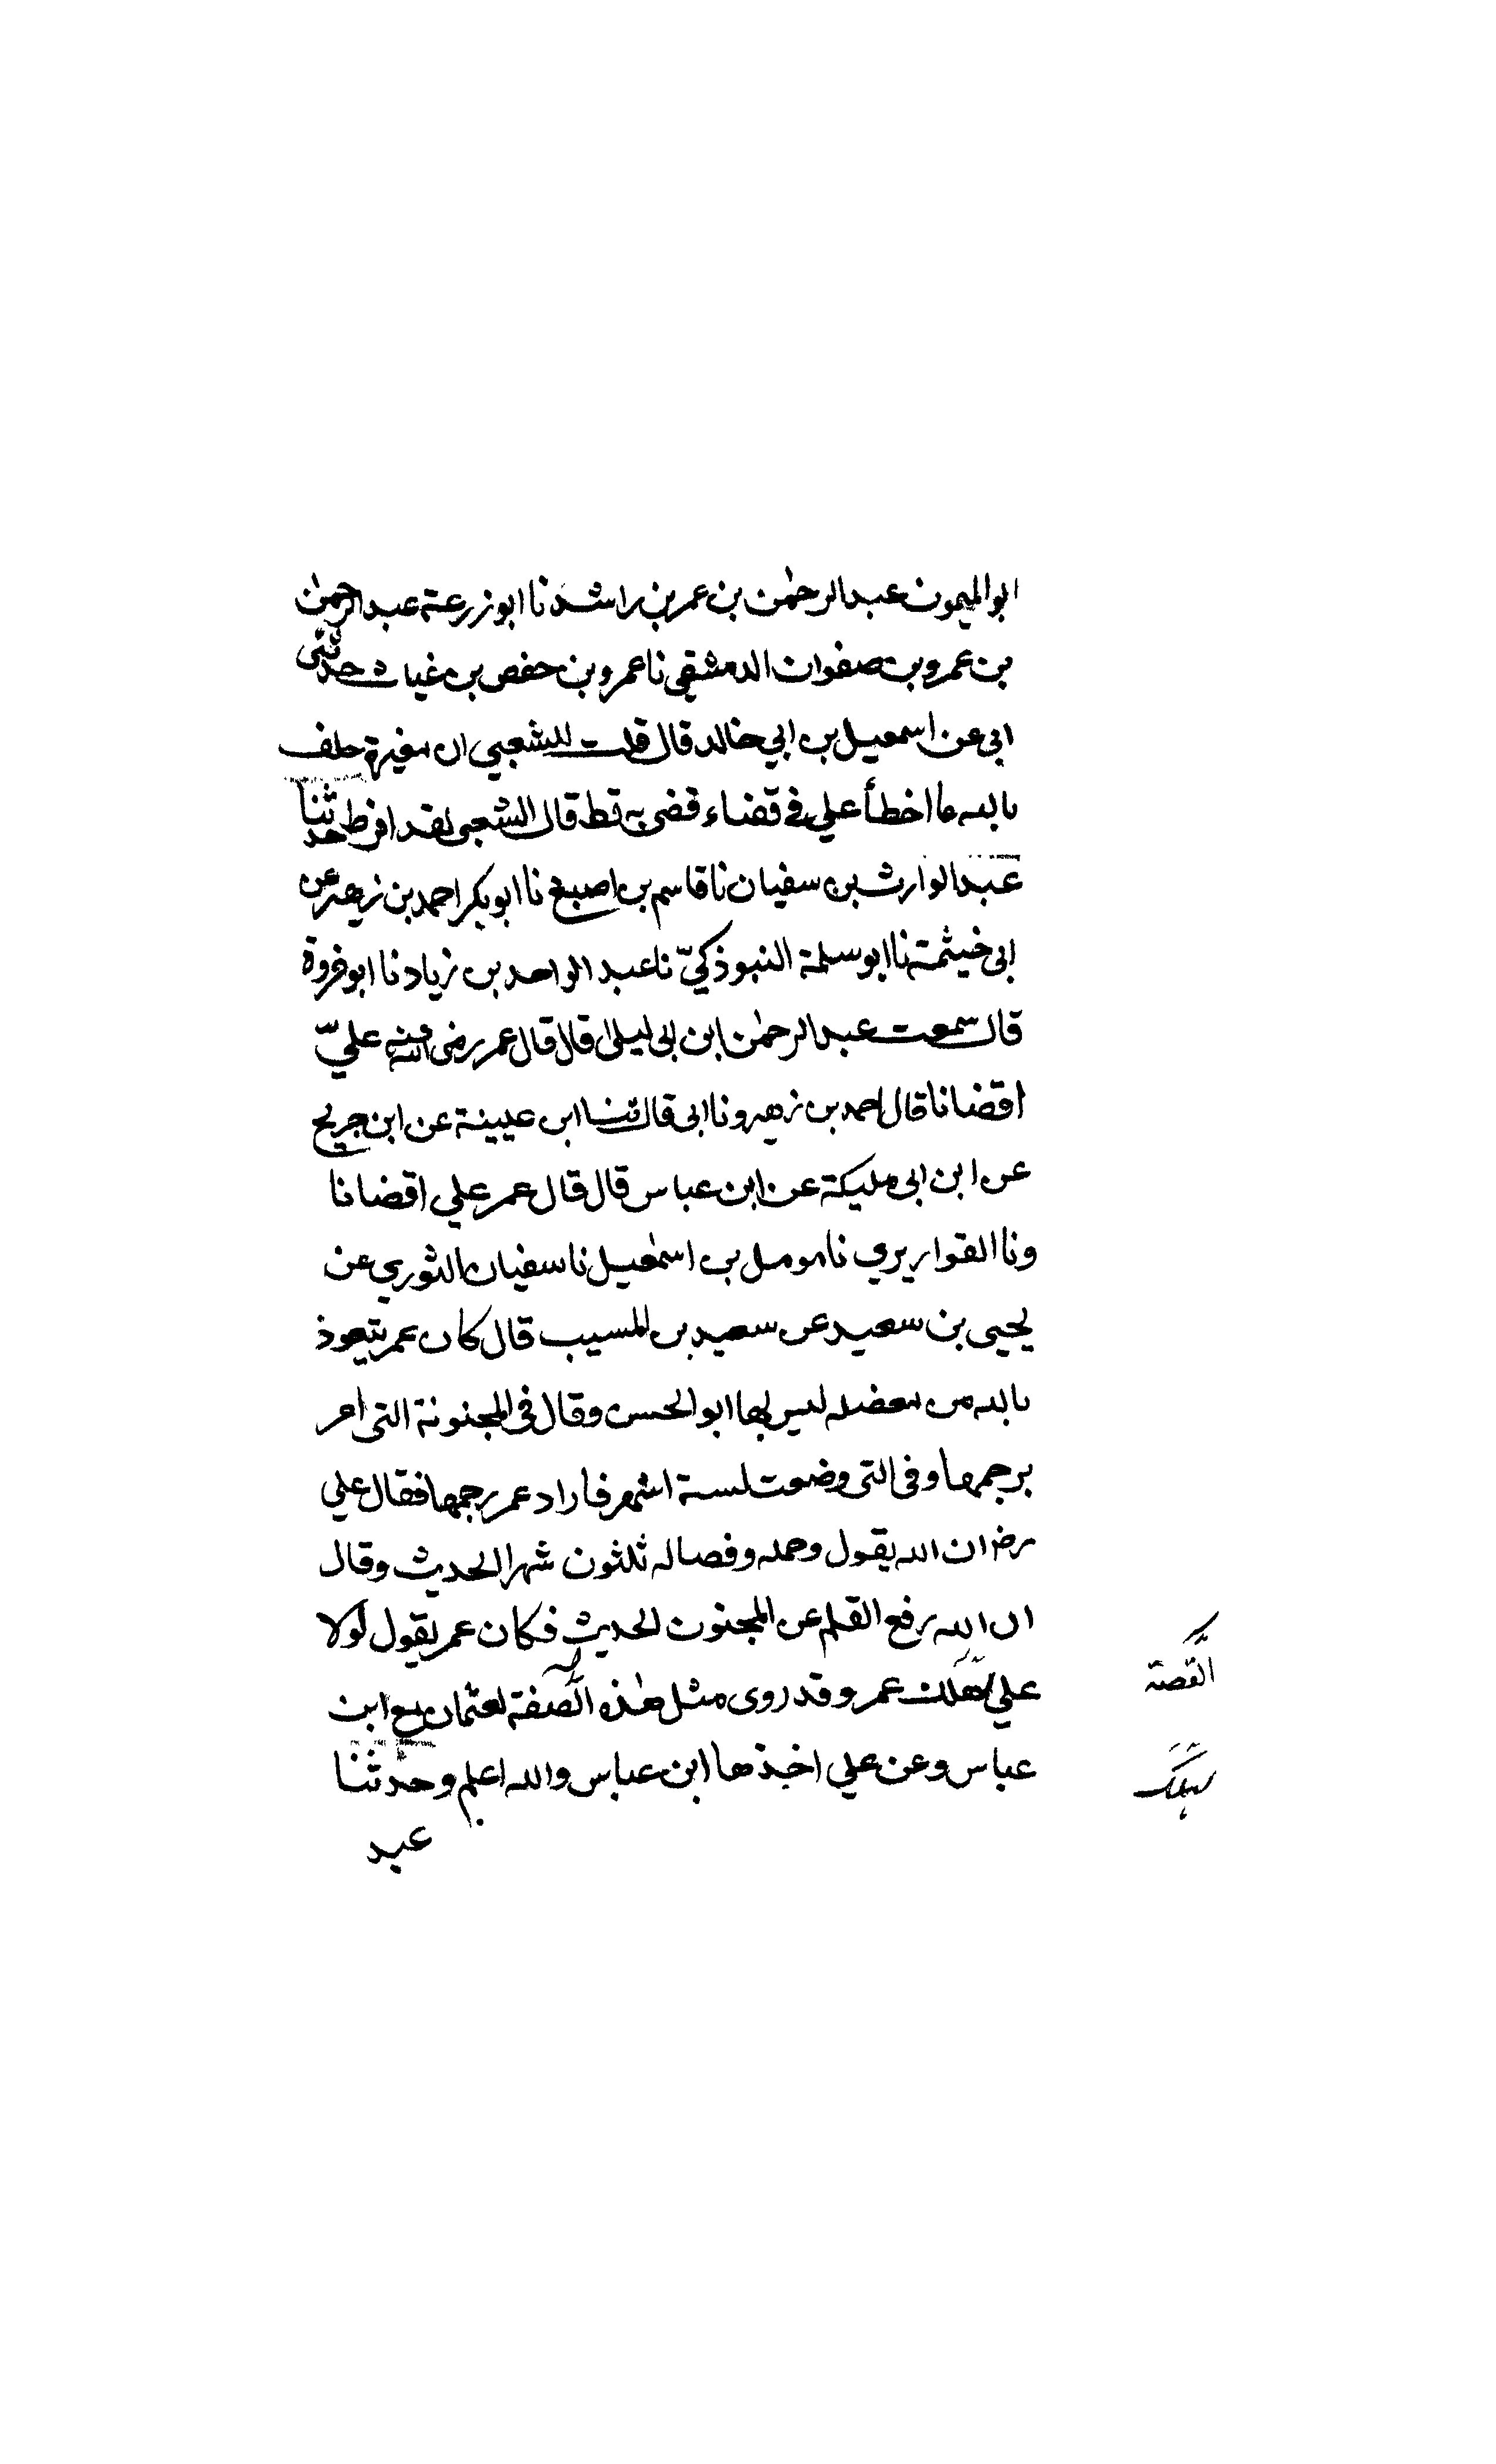 ابو الميمون عبد الرحمٰن بن عمر بن راشد نا ابو زرعة عبد الرحمٰن
بن عمرو بن صفوان الدمشقي نا عمرو بن حفص بن غياث حدثنى
ابى عن اسمعيل بن ابي خالد قال قلت للشعبي ان مغيرة حلف
بالله ما اخطأ علي في قضاء قضى به قط قال الشعبى لقد افرط حدثنا
عبد الوارث بن سفيان نا قاسم بن اصبغ نا ابو بكر احمد بن زهير عن
ابى خيثمة نا ابو سلمة التبوذكيّ نا عبد الواحد بن زياد نا ابو فروة
قال سمعت عبد الرحمٰن ابن ابى ليلى قال قال عمر رضى الله عنه عليّ
اقضانا قال احمد بن زهير ونا ابى قال ثنا ابن عيينة عن ابن جريج
عن ابن ابى مليكة عن ابن عباس قال قال عمر علي اقضانا
ونا القواريري نا مومل بن اسمٰعيل نا سفيان الثوري عن
يحيى بن سعيد عن سعيد بن المسيب قال كان عمر يتعوذ
بالله من معضلة ليس لها ابو الحسن وقال فى المجنونة التى امر
برجمها وفى التى وضعت لستة اشهر فاراد عمر رجمها فقال علي
رض ان الله يقول وحمله وفصاله ثلثون شهرا الحديث وقال
ان الله رفع القلم عن المجنون الحديث فكان عمر يقول لولا
علي لهلك عمر وقد روى مثل هذه الصفة لعثمان مع ابن
عباس وعن علي اخذها ابن عباس والله اعلم وحدثنا
عبد
القصة
لهلك